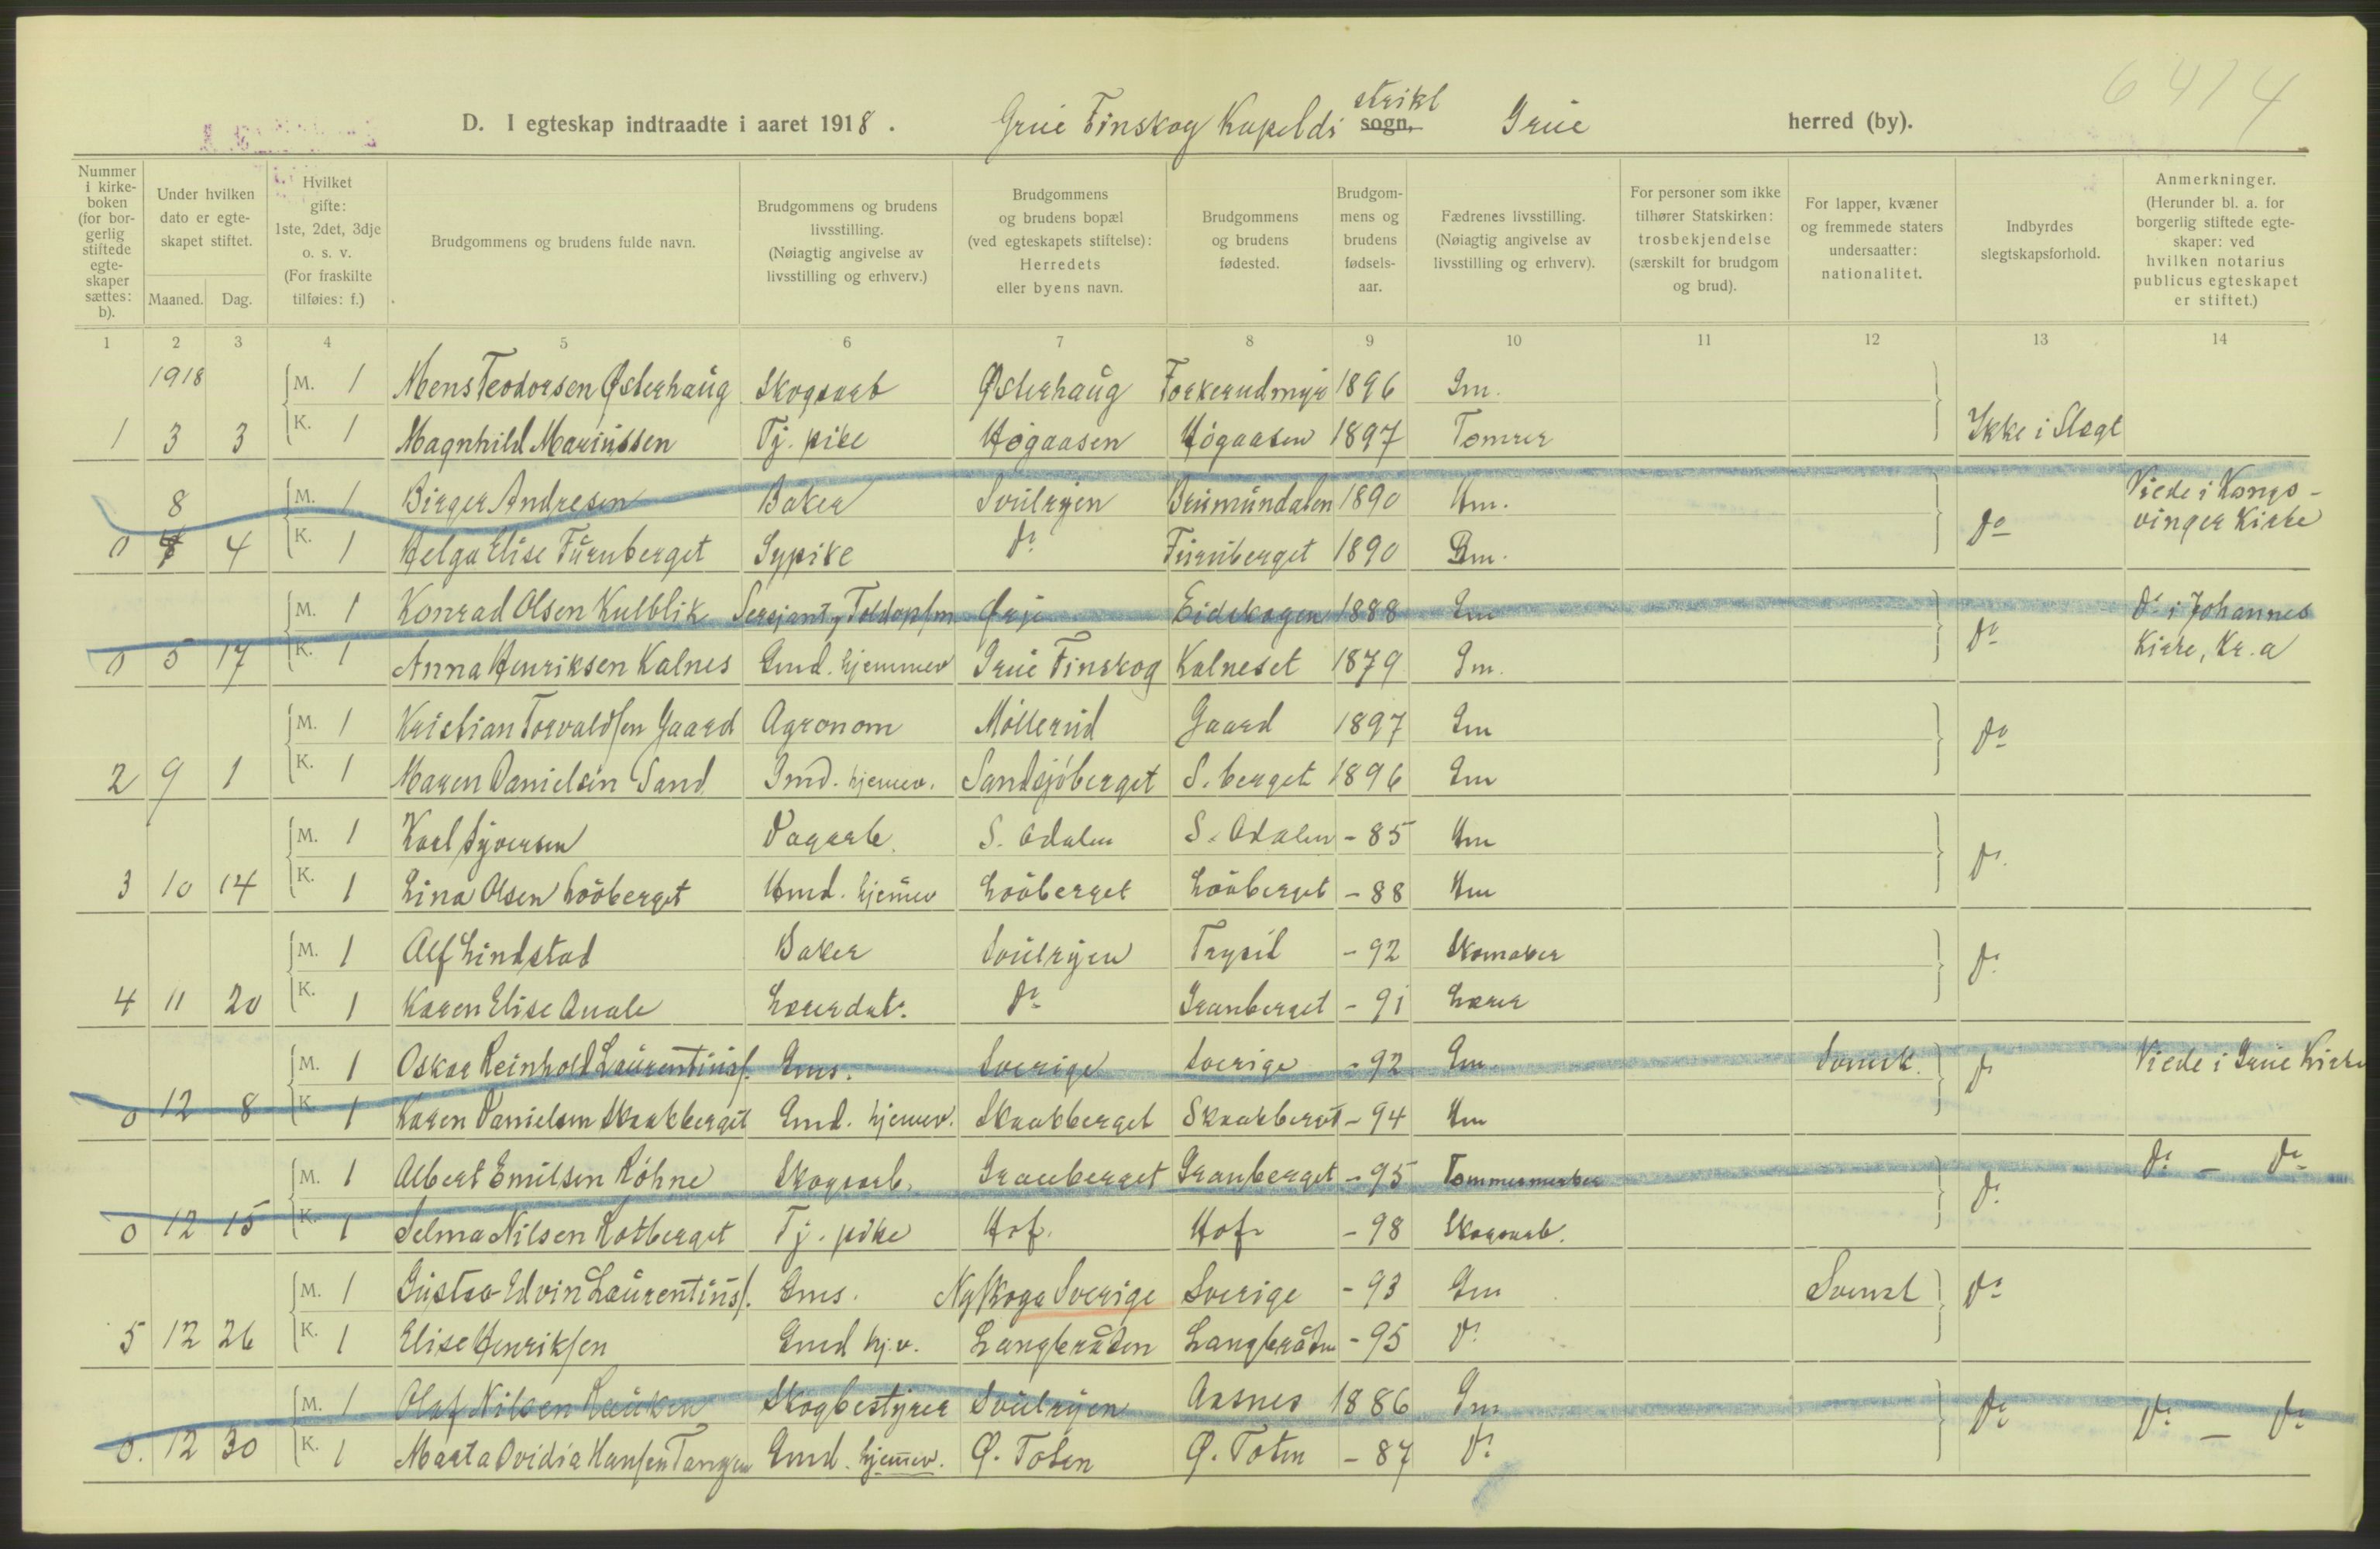 6414
D. I egteskap indtraadte i aaret 1918. Grue Finskog Kapeldistrikt sogn, Grue herred (by).
Nummer i kirkeboken (for borgerlig stiftede egteskaper sættes: b). Under hvilken dato er egteskapet stiftet. Maaned. Dag. Hvilket gifte: 1ste, 2det, 3dje o. s. v. (For fraskilte tilføies: f.) Brudgommens og brudens fulde navn. Brudgommens og brudens livsstilling. (Nøiagtig angivelse av livsstilling og erhverv.) Brudgommens og brudens bopæl (ved egteskapets stiftelse): Herredets eller byens navn. Brudgommens og brudens fødested. Brudgommens og brudens fødselsaar. Fædrenes livsstilling. (Nøiagtig angivelse av livsstilling og erhverv). For personer som ikke tilhører Statskirken: trosbekjendelse (særskilt for brudgom og brud). For lapper, kvæner og fremmede staters undersaatter: nationalitet. Indbyrdes slegtskapsforhold. Anmerkninger. (Herunder bl. a. for borgerlig stiftede egteskaper: ved hvilken notarius publicus egteskapet er stiftet.)
1 2 3 4 5 6 7 8 9 10 11 12 13 14
1918 M. 1 Mens Teodorsen Østerhaug Skogsarb Østerhaug Torkerudmyr 1896 Gm.
1 3 3 K. 1 Magnhild Mariussen Tj. pike Høgaasen Høgaasen 1897 Tømrer Ikke i Slegt
8 M. 1 Birger Andresen Baker Svulryen Brumundalen 1890 Hm. Viede i Kongs-
0 4 K. 1 Helga Elise Furuberget Sypike do Furuberget 1890 Bm. do vinger Kirke
M. 1 Konrad Olsen Kulblik Sersjant Ørje Eidskogen 1888 Gm do i Johannes
0 5 17 K. 1 Anna Henriksen Kalnes Gmd. hjemmev Grue Finskog Kalneset 1879 Gm. do Kirke, Kr.a
M. 1 Kristian Torvaldsen Gaard Agronom Møllerud Gaard 1897 Gm do
2 9 1 K. 1 Maren Danielsen Sand Gmd. hjemev. Sandsjøberget S. berget 1896 Gm
M. 1 Karl Syversen Dagarb. S. Odalen S. Odalen - 85 Hm do
3 10 14 K. 1 Lina Olsen Lööberget Hmd. hjemev Lööberget Lööberget - 88 Hm
M. 1 Alf Lindstad Baker Svulryen Trysil - 92 Skomaker do
4 11 20 K. 1 Karen Elise Qvale Lærerdat. do Granberget - 91 Lærer
M. 1 Oskar Reinhold Laurentius. Gms. Sverige Sverige - 92 Gm Svensk. do Viede i Grue Kirke
0 12 8 K. 1 Karen Danielsen Skaakberget Gmd. hjemev. Skaakberget Skaakberget - 94 Hm
M. 1 Albert Emilsen Röhne Skogsarb. Granberget Granberget - 95 Tømmermerker do do - do
0 12 15 K. 1 Selma Nilsen Rotberget Tj. pike Hof. Hof - 98 Skogsarb.
M. 1 Gustav Edvin Laurentius. Gms. Nyskoga Sverige Sverige - 93 Gm Svensk do
5 12 26 K. 1 Elise Henriksen Gmd hj.v. Langbråten Langbråten - 95 do
M. 1 Olaf Nilsen Skogbestyrer Svulryen Aasnes 1886 Gm do do - do
0. 12 30 K. 1 Marta Ovidia Hansen Tangen Gmd. hjemev. Ø. Toten Ø. Toten - 87 do